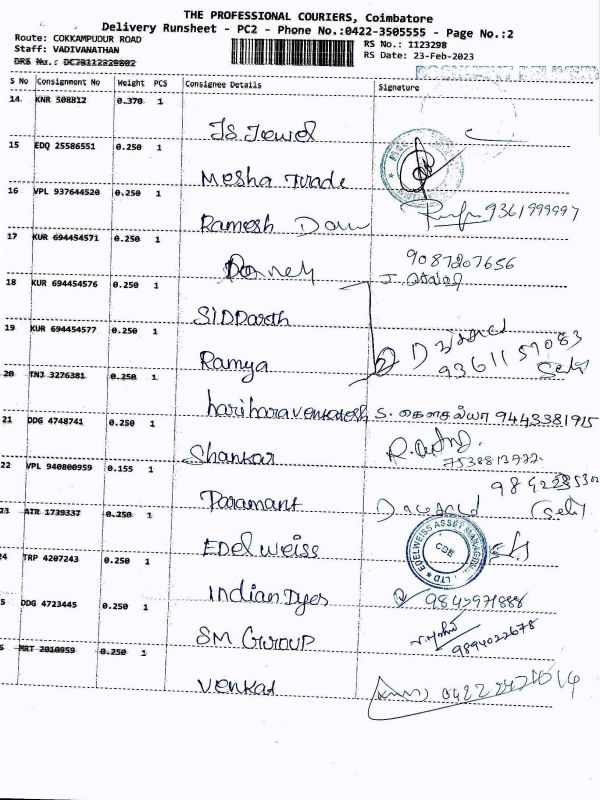 THE PROFESSIONAL COURIERS, Coimbatore
Delivery Runsheet - PC2 - Phone No.:0422-3505555 - Page No.:2
Route: COKKAMPUDUR ROAD
RS No.: 1123298
Staff: VADIVANATHAN
RS Date: 23-Feb-2023
DRS No.:
S No Consignment No Weight PCS Consignee Details Signature
14 KNR 508812 0.370 1
JS Jewel
15 EDQ 25586551 0.250 1
Mesha Trade
16 VPL 937644520 0.250 1
Ramesh 9361999997
17 KUR 694454571 0.250 1
9087207656
18 KUR 694454576 0.250 1
SIDDarth
19 KUR 694454577 0.250 1
Ramya
9361157083
20 TNJ 3276381 0.250 1
hariharavenkatesh S. கௌசல்யா 9443381915
21 DDG 4748741 0.250 1
Shankar
22 VPL 940800959 0.155 1
Paramant
23 ATR 1739337 0.250 1
Edelweiss
EDELWEISS ASSET MANAGEM... LTD
CBE
24 TRP 4207243 0.250 1
Indian Dyes
25 DDG 4723445 0.250 1
SM Group 9894022678
26 MRT 2010959 0.250 1
Venkat